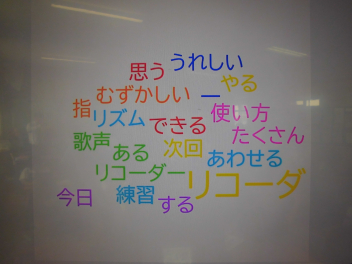 うれしい
思う
やる
むずかしい
ー
指
使い方
リズム
できる
たくさん
歌声
ある
次回
あわせる
リコーダー
リコーダ
今日
練習
する